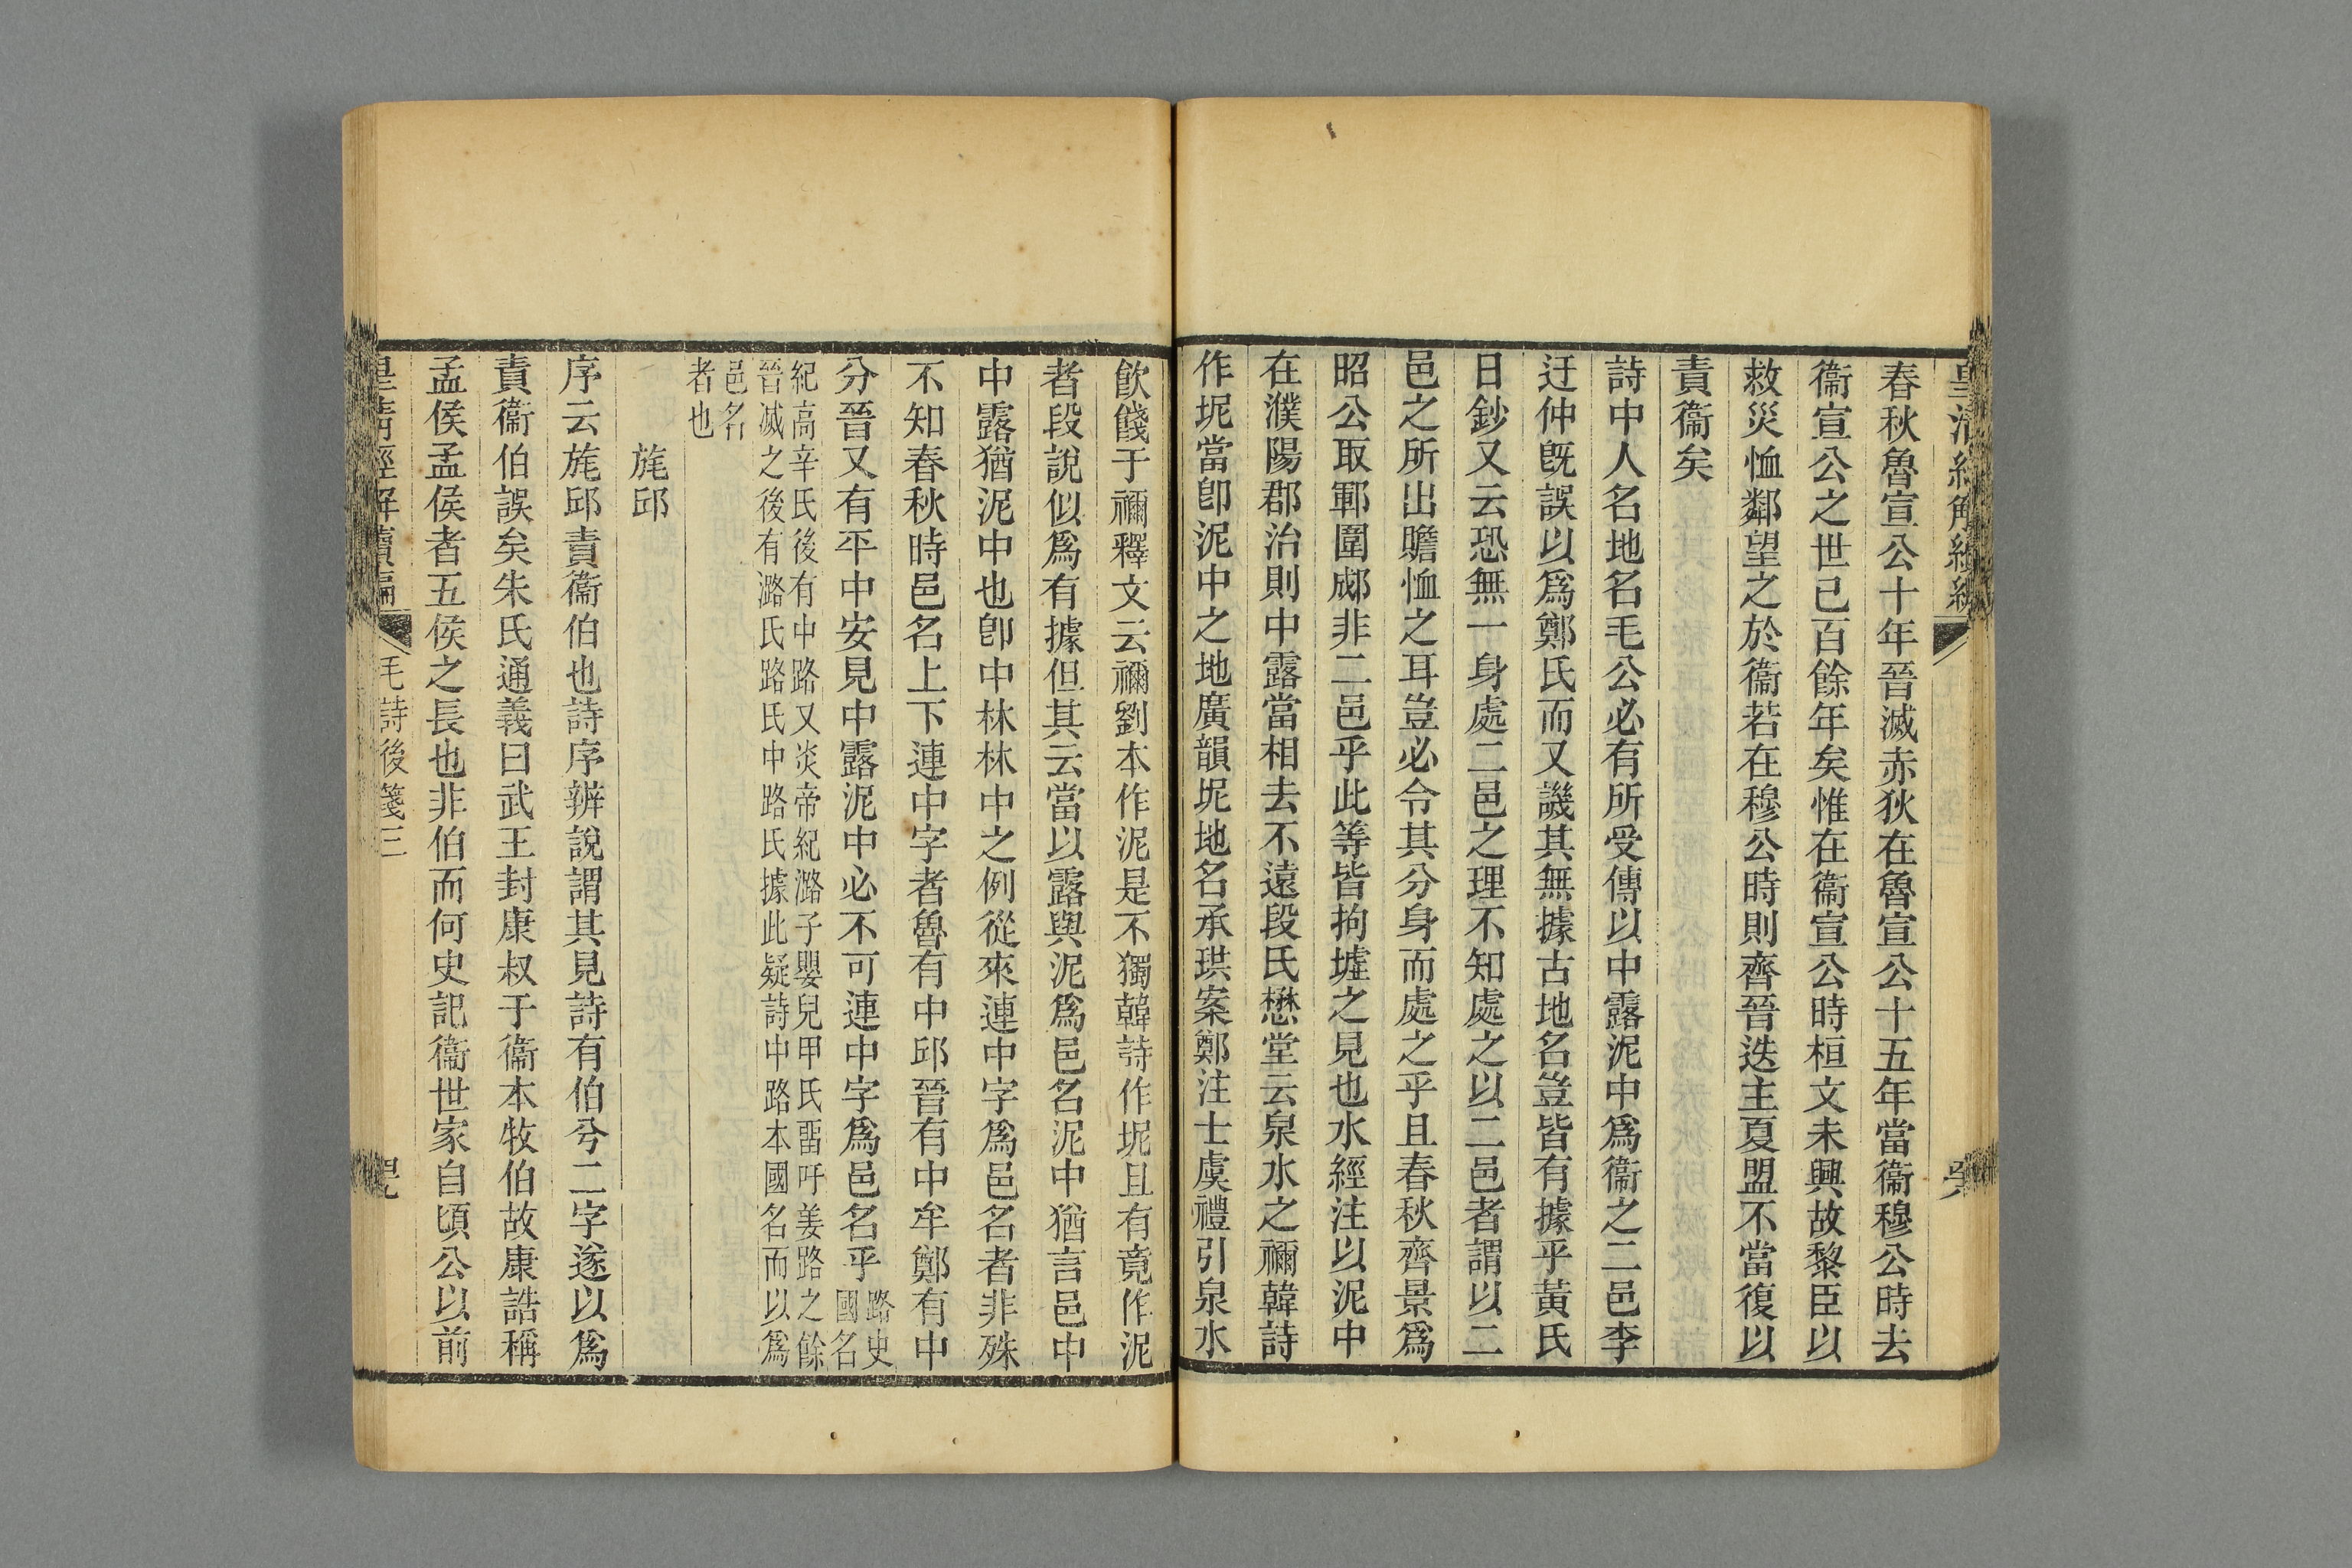 春秋魯宣公十年晉滅赤狄在魯宣公十五年當衞穆公時去
衞宣公之世已百餘年矣惟在衞宣公時桓文未興故黎臣以
救災恤鄰望之於衞若在穆公時則齊晉迭主夏盟不當復以
責衞矣
詩中人名地名毛公必有所受傳以中露泥中爲衞之二邑李
迂仲旣誤以爲鄭氏而又譏其無據古地名豈皆有據乎黃氏
日鈔又云恐無一身處二邑之理不知處之以二邑者謂以二
邑之所出贍恤之耳豈必令其分身而處之乎且春秋齊景爲
昭公取鄆圍郕非二邑乎此等皆拘墟之見也水經注以泥中
在濮陽郡治則中露當相去不遠段氏懋堂云泉水之禰韓詩
作坭當卽泥中之地廣韻坭地名承珙案鄭注士虞禮引泉水
飮餞于禰釋文云禰劉本作泥是不獨韓詩作坭且有竟作泥
者段說似爲有據但其云當以露與泥爲邑名泥中猶言邑中
中露猶泥中也卽中林林中之例從來連中字爲邑名者非殊
不知春秋時邑名上下連中字者魯有中邱晉有中牟鄭有中
分晉又有平中安見中露泥中必不可連中字爲邑名乎路史
國名
紀高辛氏後有中路又炎帝紀潞子嬰兒甲氏畱吁姜路之餘
晉滅之後有潞氏路氏中路氏據此疑詩中路本國名而以爲
邑名
者也
旄邱
序云旄邱責衞伯也詩序辨說謂其見詩有伯兮二字遂以爲
責衞伯誤矣朱氏通義曰武王封康叔于衞本牧伯故康誥稱
孟侯孟侯者五侯之長也非伯而何史記衞世家自頃公以前
皇淸經解續編
毛詩後箋三